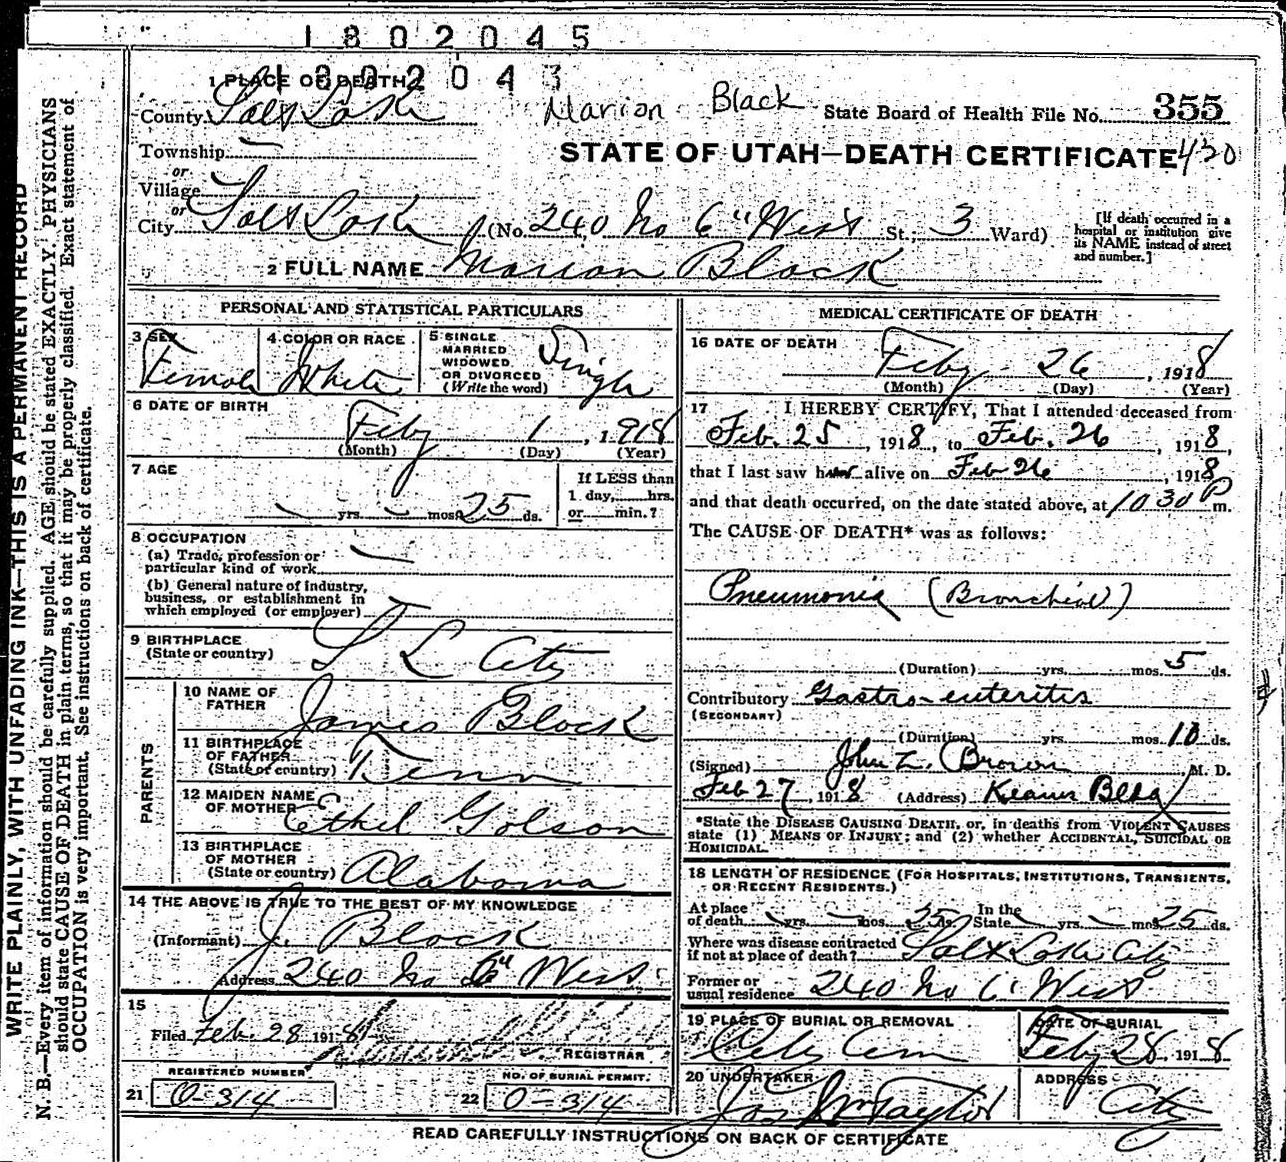 1802045
1802043
1 PLACE OF DEATH
County Salt Lake
Marion Black
State Board of Health File No. 355
Township
STATE OF UTAH—DEATH CERTIFICATE 430
or
Village
or
City Salt Lake (No. 240 No 6" West St.; 3 Ward)
[If death occurred in a hospital or institution give its NAME instead of street and number.]
2 FULL NAME Marion Black
PERSONAL AND STATISTICAL PARTICULARS
3 SEX Female
4 COLOR OR RACE White
5 SINGLE MARRIED WIDOWED OR DIVORCED (Write the word) Single
6 DATE OF BIRTH
Feby 1, 1918
(Month) (Day) (Year)
7 AGE
yrs. mos. 25 ds.
If LESS than 1 day, hrs. or min.?
8 OCCUPATION
(a) Trade, profession or particular kind of work
(b) General nature of industry, business, or establishment in which employed (or employer)
9 BIRTHPLACE (State or country) S L City
PARENTS
10 NAME OF FATHER James Black
11 BIRTHPLACE OF FATHER (State or country) Tenn
12 MAIDEN NAME OF MOTHER Ethel Golson
13 BIRTHPLACE OF MOTHER (State or country) Alabama
14 THE ABOVE IS TRUE TO THE BEST OF MY KNOWLEDGE
(Informant) J. Black
Address 240 No 6" West
15
Filed Feb. 28 1918
REGISTRAR
REGISTERED NUMBER
NO. OF BURIAL PERMIT.
21 O-314 22 O-314
MEDICAL CERTIFICATE OF DEATH
16 DATE OF DEATH
Feby 26, 1918
(Month) (Day) (Year)
17 I HEREBY CERTIFY, That I attended deceased from
Feb. 25, 1918, to Feb. 26, 1918,
that I last saw her alive on Feb 26, 1918
and that death occurred, on the date stated above, at 10 30 P m.
The CAUSE OF DEATH* was as follows:
Pneumonia (Bronchial)
(Duration) yrs. mos. 5 ds.
Contributory Gastro-enteritis
(SECONDARY)
(Duration) yrs. mos. 10 ds.
(Signed) John Z. Brown M. D.
Feb 27, 1918 (Address) Kearns Bldg
*State the DISEASE CAUSING DEATH, or, in deaths from VIOLENT CAUSES
state (1) MEANS OF INJURY; and (2) whether ACCIDENTAL, SUICIDAL OR
HOMICIDAL.
18 LENGTH OF RESIDENCE (FOR HOSPITALS, INSTITUTIONS, TRANSIENTS,
OR RECENT RESIDENTS.)
At place of death yrs. mos. 25 ds. In the State yrs. mos. 25 ds.
Where was disease contracted if not at place of death? Salt Lake City
Former or usual residence 240 No 6" West
19 PLACE OF BURIAL OR REMOVAL City Cem
DATE OF BURIAL Feby 28, 1918
20 UNDERTAKER Jos Wm Taylor
ADDRESS City
READ CAREFULLY INSTRUCTIONS ON BACK OF CERTIFICATE
WRITE PLAINLY, WITH UNFADING INK—THIS IS A PERMANENT RECORD
N. B.—Every item of information should be carefully supplied. AGE should be stated EXACTLY. PHYSICIANS
should state CAUSE OF DEATH in plain terms, so that it may be properly classified. Exact statement of
OCCUPATION is very important. See instructions on back of certificate.